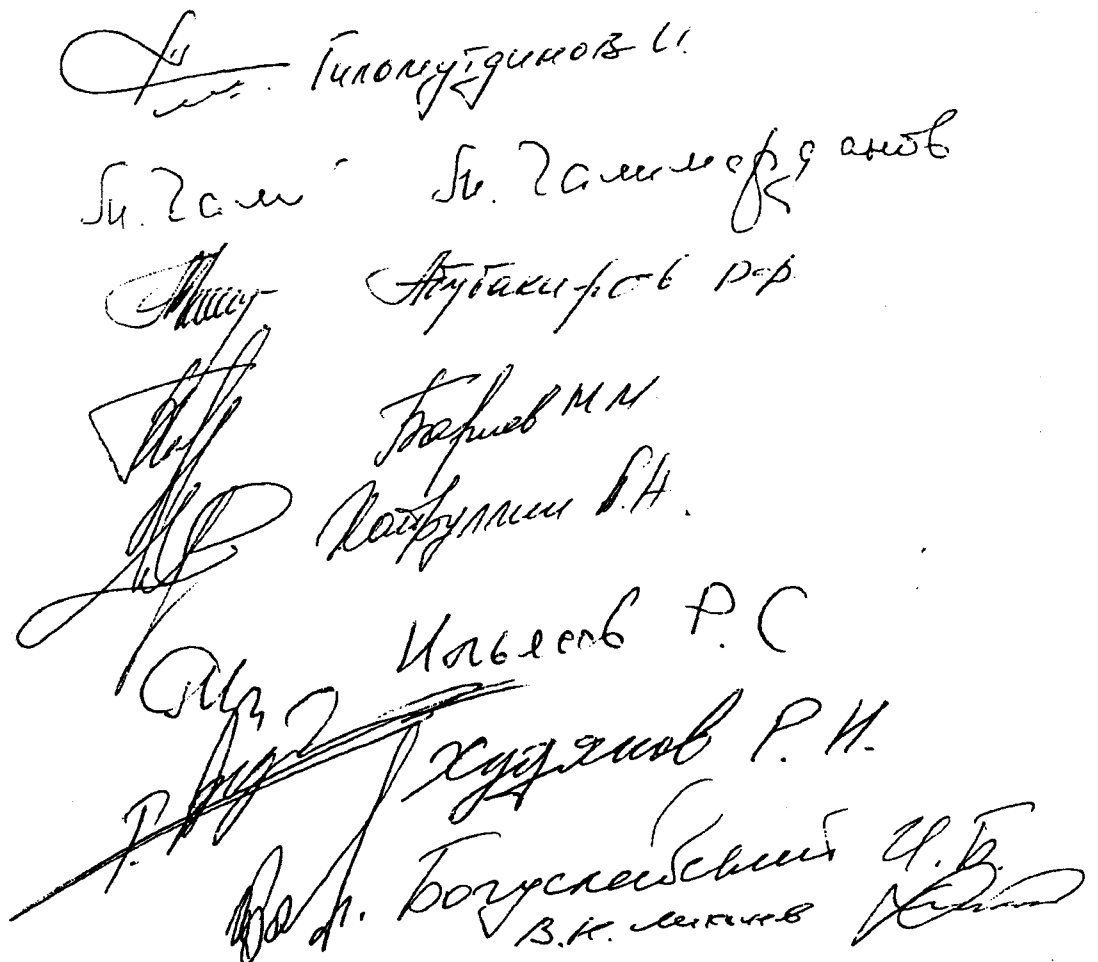 Гиломутдинов И.
М. Гали М. Галимарданов
Абубакиров Р.Р
Бариев М М
Хайруллин Г.Н.
Ильясов Р.С
Худяков Р.И.
Богуславский И.Б.
В.Н.